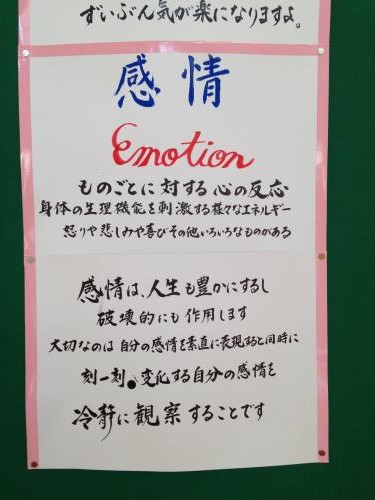 ずいぶん気が楽になりますよ。
感情
Emotion
ものごとに対する心の反応
身体の生理機能を刺激する様々なエネルギー
怒りや悲しみや喜びその他いろいろなものがある
感情は、人生も豊かにするし
破壊的にも作用します
大切なのは自分の感情を素直に表現すると同時に
刻一刻、変化する自分の感情を
冷静に観察することです